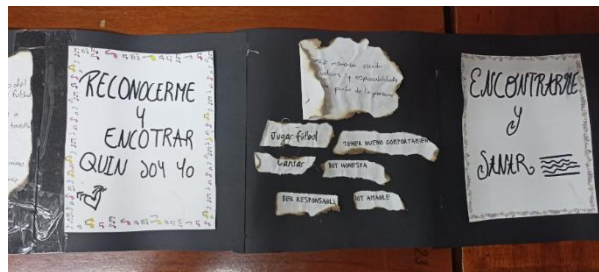 RECONOCERME
Y
ENCOTRAR
QUIN SOY YO
y responsabilidade
de la persona
Jugar fútbol
TENER BUENO COMPORTAMIEN
Cantar
SOY HONESTA
SER RESPONSABLE
SOY AMABLE
ENCONTRARME
y
SANAR